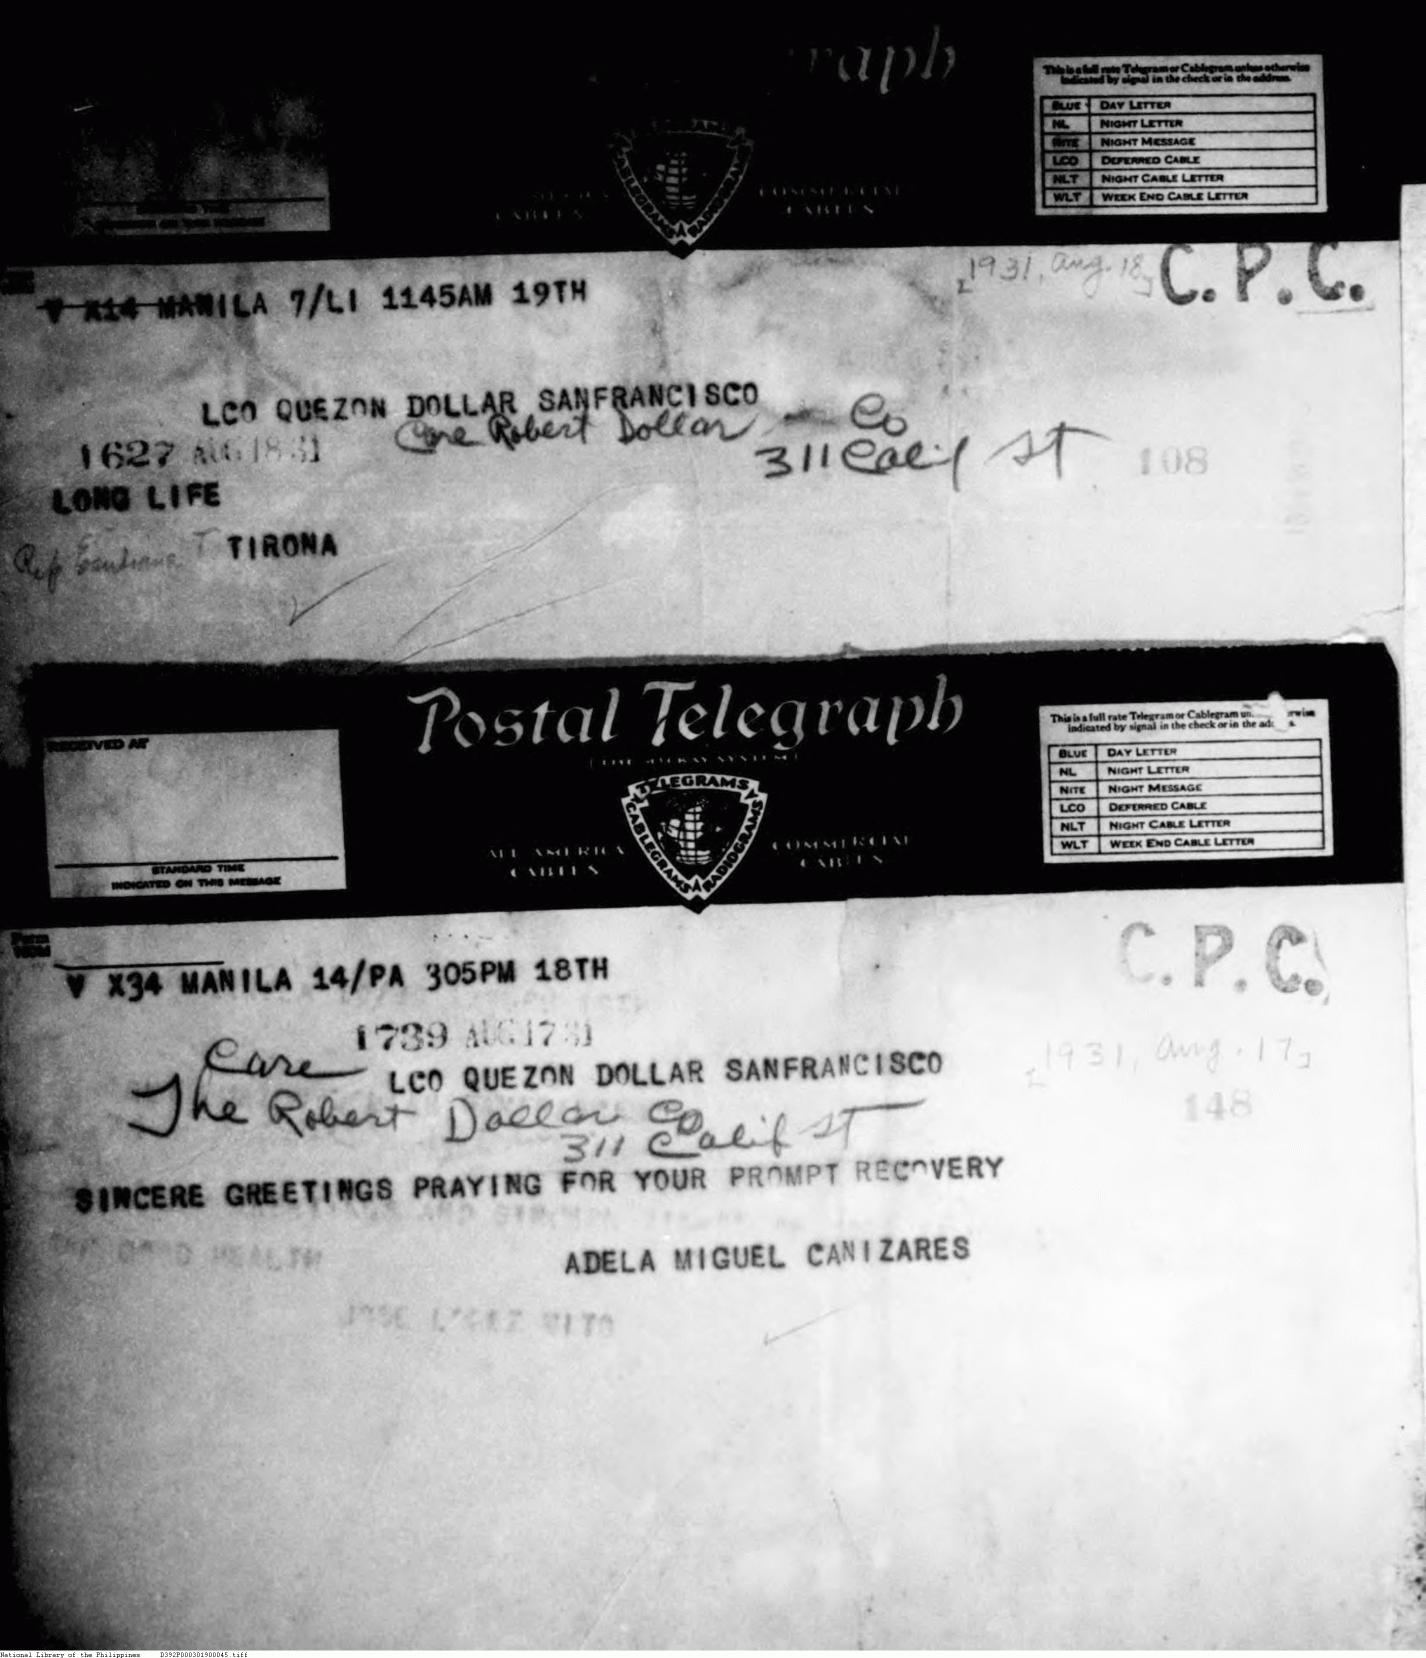 raph
This is a full rate Telegram or Cablegram unless otherwise
indicated by signal in the check or in the address.
BLUE DAY LETTER
NL NIGHT LETTER
NITE NIGHT MESSAGE
LCO DEFERRED CABLE
NLT NIGHT CABLE LETTER
WLT WEEK END CABLE LETTER
CABLEGRAMS RADIOGRAMS
CABLES
COMMERCIAL
CABLES
[1931, Aug. 18] C. P. C.
V X14 MANILA 7/LI 1145AM 19TH
LCO QUEZON DOLLAR SANFRANCISCO
Care Robert Dollar Co
311 Calif St
1627 AUG 18 31
108
LONG LIFE
TIRONA
Postal Telegraph
(THE MACKAY SYSTEM)
RECEIVED AT
STANDARD TIME
INDICATED ON THIS MESSAGE
TELEGRAMS
CABLEGRAMS RADIOGRAMS
ALL AMERICA
CABLES
COMMERCIAL
CABLES
This is a full rate Telegram or Cablegram un rwise
indicated by signal in the check or in the add s.
BLUE DAY LETTER
NL NIGHT LETTER
NITE NIGHT MESSAGE
LCO DEFERRED CABLE
NLT NIGHT CABLE LETTER
WLT WEEK END CABLE LETTER
Form
C. P. C.
V X34 MANILA 14/PA 305PM 18TH
1739 AUG 17 31
[1931, Aug. 17]
148
Care
LCO QUEZON DOLLAR SANFRANCISCO
The Robert Dollar Co
311 Calif St
SINCERE GREETINGS PRAYING FOR YOUR PROMPT RECOVERY
GOOD HEALTH
ADELA MIGUEL CANIZARES
JOSE LOPEZ VITO
National Library of the Philippines D392P000301900045.tiff